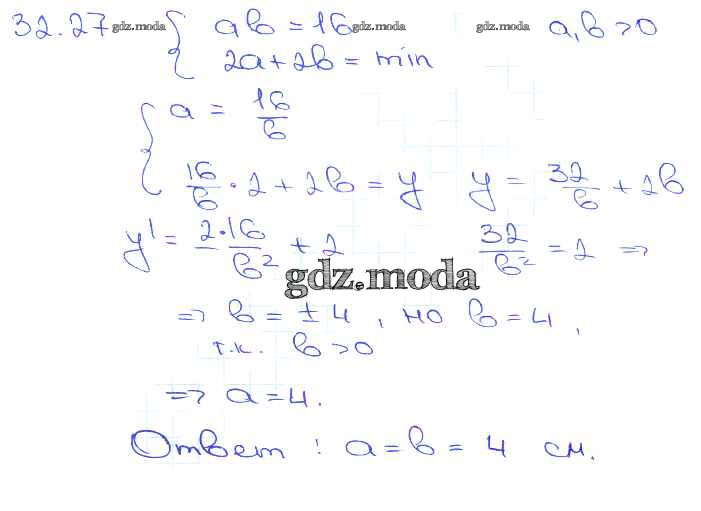 32.27 gdz.moda { ab = 16 gdz.moda gdz.moda a,b > 0
2a + 2b = min
{ a = 16/b
16/b · 2 + 2b = y y = 32/b + 2b
y' = - 2·16/b² + 2 32/b² = 2 =>
gdz.moda
=> b = ± 4 , но b = 4 ,
т.к. b > 0
=> a = 4.
Ответ : a = b = 4 см.